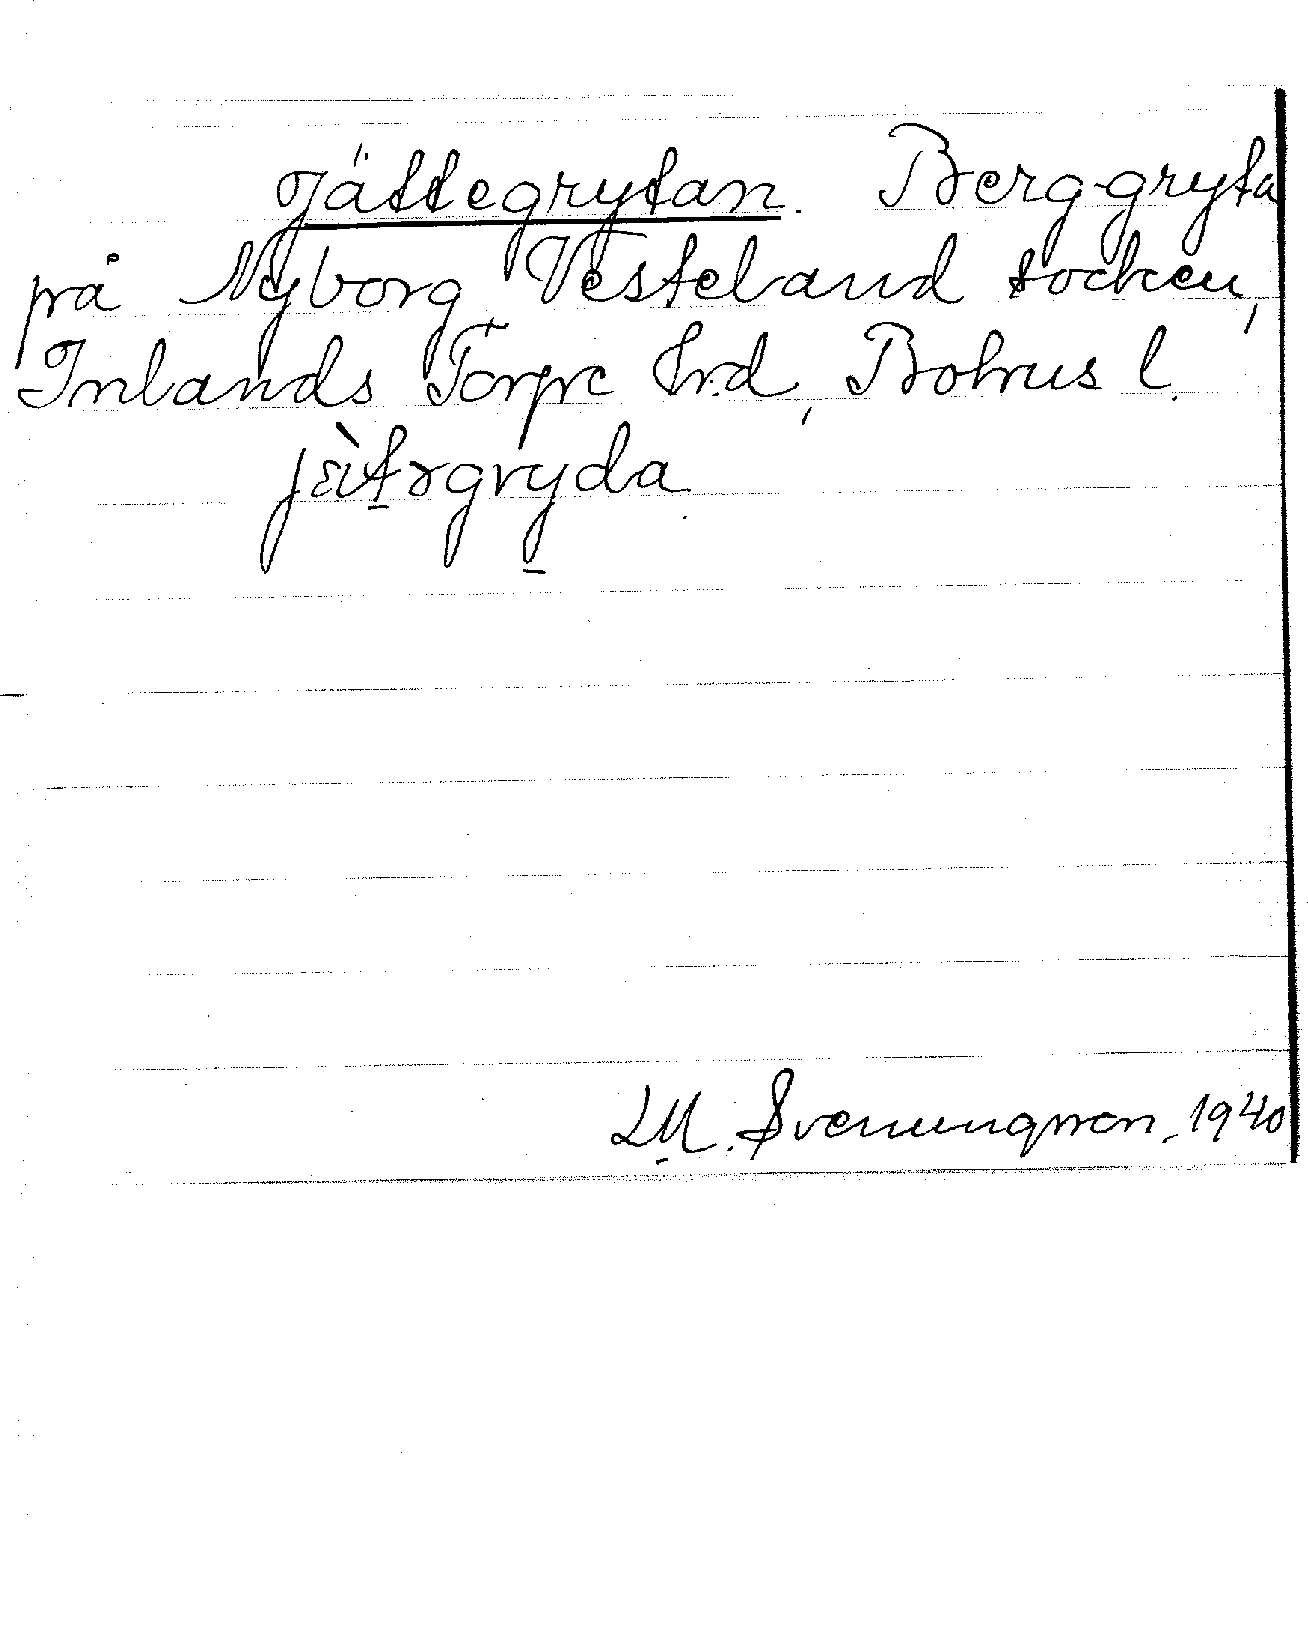 Jättegrytan. Berg-gryta
på Nyborg Vesteland socken,
Inlands Torpe hrd, Bohus l.
jɛ̀təgryda
L M. Svenungsson, 1940